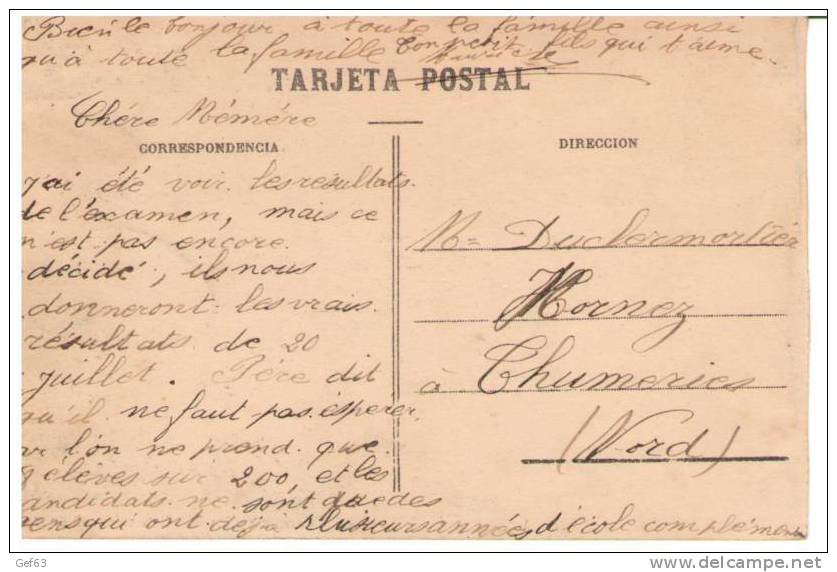 Bien le bonjour à toute la famille ainsi
qu'à toute la famille Ton petit fils qui t'aime.
TARJETA POSTAL
Chére Mémére
CORRESPONDENCIA
DIRECCION
j'ai été voir les resultats.
de l'examen, mais ce
n'est pas encore
décidé, ils nous
donneront les vrais
résultats de 20
juillet. Pére dit
qu'il ne faut pas éspérer
l'on ne prend que
élèves sur 200, et les
candidats ne sont que des
gens qui ont déja plusieurs années d'école complémen
Me Duclermortier
Hornez
à Thumeries
(Nord)
Gef63
delcampe.net